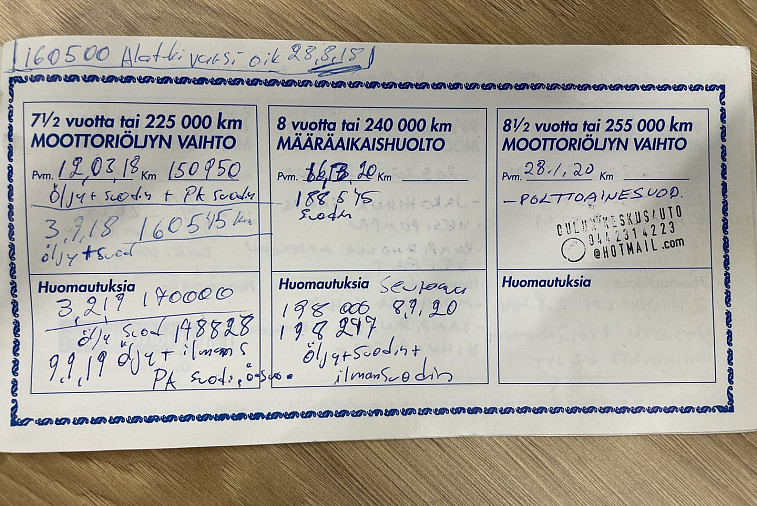 160500 Alatukivarsi oik 28,8,18
7½ vuotta tai 225 000 km
MOOTTORIÖLJYN VAIHTO
Pvm. 12,03,18 Km 150950
Öljy + suodin + PA suodin
3,9,18 160545 km
öljy + suod
Huomautuksia
3,2,19 170000
öljy suod 178828
9,9,19 öljy + ilmans
PA suodin
8 vuotta tai 240 000 km
MÄÄRÄAIKAISHUOLTO
Pvm. 20 Km
188545
suodin
Huomautuksia Seuraava
198 000 8,9,20
198 247
öljy + suodin +
ilmansuodin
8½ vuotta tai 255 000 km
MOOTTORIÖLJYN VAIHTO
Pvm. 28.1,20 Km
- POLTTOAINESUOD.
OULUN KESKUSAUTO
0442314223
@HOTMAIL.com
Huomautuksia